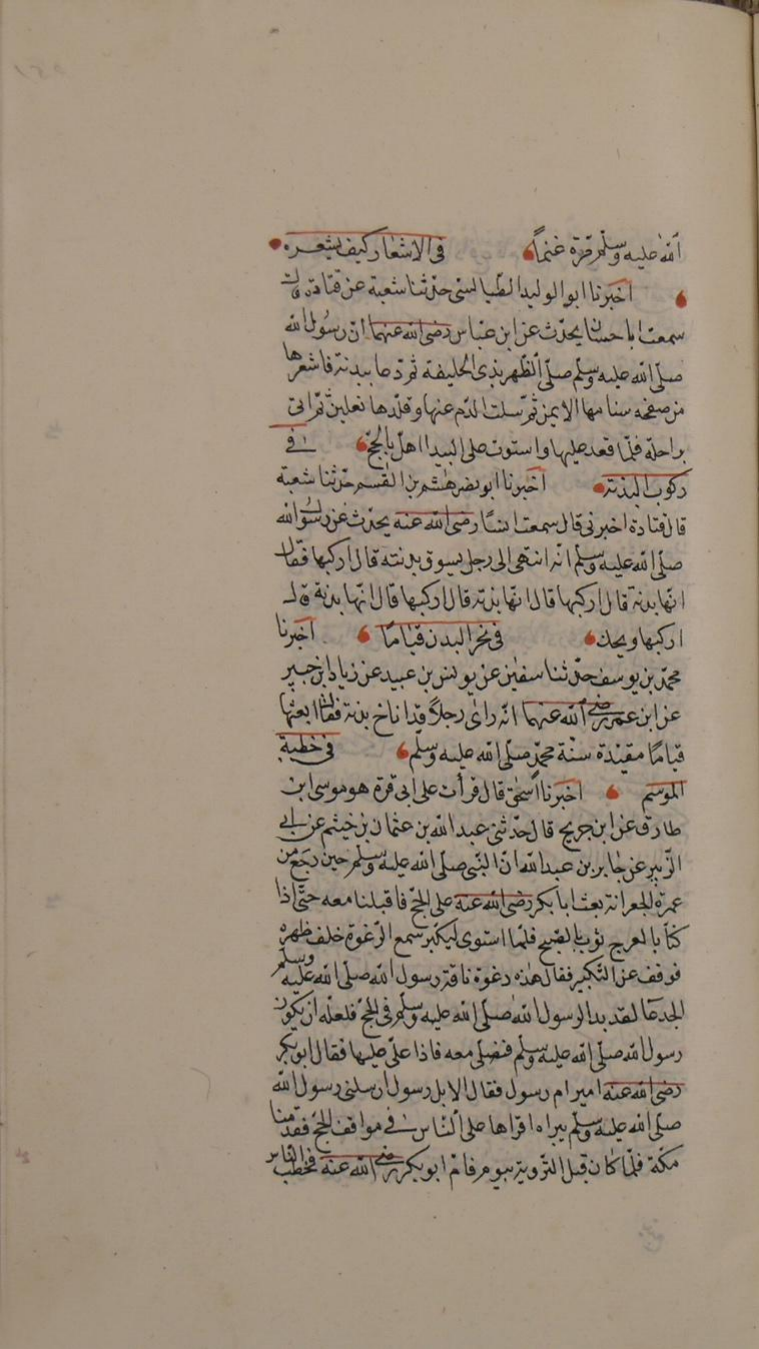 الله عليه وسلم مرة غنماً في الاشعار كيف يشعره
اخبرنا ابو الوليد الطيالسى حدثنا شعبة عن قتادة قال
سمعت ابا حسان يحدث عن ابن عباس رضى الله عنهما ان رسول الله
صلى الله عليه وسلم صلى الظهر بذى الحليفة ثم دعا ببدنة فاشعرها
من صفحه سنامها الايمن ثم سلت الدم عنها وقلدها نعلين ثم اتى
براحلة فلما قعد عليها واستوت على البيدا اهل بالحج فى
ركوب البدنة اخبرنا ابو نضر هاشم بن القسم حدثنا شعبة
قال قتادة اخبرنى قال سمعت انسًا رضى الله عنه يحدث عن رسول الله
صلى الله عليه وسلم انه انتهى الى رجل يسوق بدنته قال اركبها فقال
انها بدنة قال اركبها قال انها بدنة قال اركبها قال انها بدنة قال
اركبها ويحك فى نحر البدن قيامًا اخبرنا
محمد بن يوسف حدثنا سفين عن يونس بن عبيد عن زياد ابن جبير
عن ابن عمر رضى الله عنهما انه راى رجلا قد اناخ بدنة فقال ابعثها
قيامًا مقيدة سنة محمد صلى الله عليه وسلم فى خطبة
الموسم اخبرنا اسحق قال قرأت على ابى قرة هو موسى ابن
طارق عن ابن جريج قال حدثنى عبد الله بن عثمان بن خيثم عن ابى
الزبير عن جابر بن عبد الله ان النبى صلى الله عليه وسلم حين رجع من
عمرة الجعرانة بعث ابا بكر رضى الله عنه على الحج فاقبلنا معه حتى اذا
كنا بالعرج ثوب بالصبح فلما استوى ليكبر سمع الرغوة خلف ظهره
فوقف عن التكبير فقال هذه رغوة ناقة رسول الله صلى الله عليه وسلم
الجدعا لقد بدا لرسول الله صلى الله عليه وسلم فى الحج فلعله ان يكون
رسول الله صلى الله عليه وسلم فنصلى معه فاذا على عليها فقال ابو بكر
رضى الله عنه امير ام رسول فقال لا بل رسول ارسلنى رسول الله
صلى الله عليه وسلم ببراه اقراها على الناس فى مواقف الحج فقدمنا
مكة فلما كان قبل التروية بيوم قام ابو بكر رضى الله عنه فخطب الناس